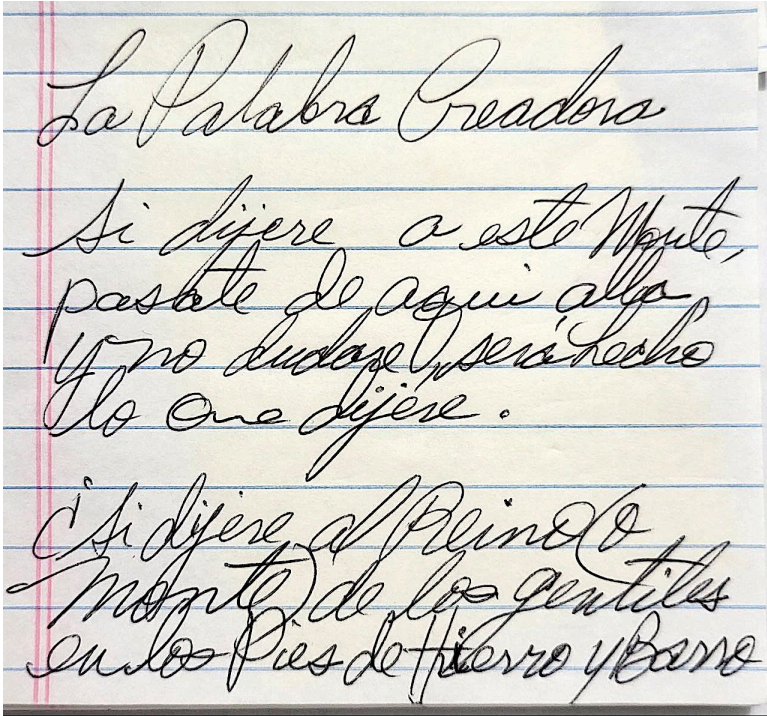 La Palabra Creadora
Si dijere a este Monte,
pasate de aqui alla
y no dudare, será hecho
lo que dijere.
¿Si dijere al Reino (o
monte) de los gentiles
en los Pies de Hierro y Barro